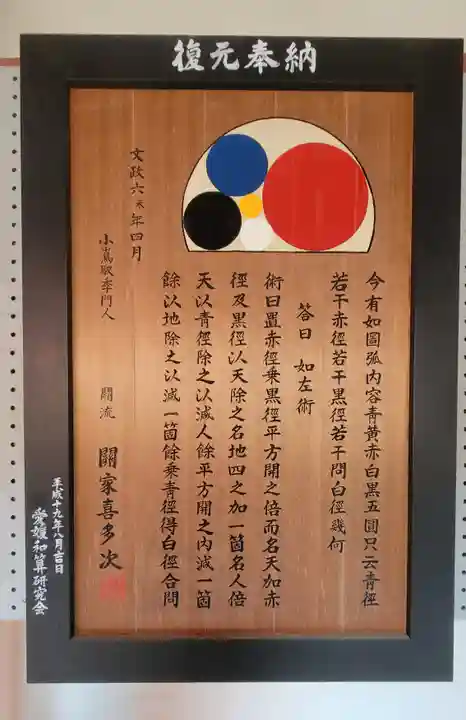 復元奉納
今有如圖弧内容青黄赤白黒五圓只云青徑
若干赤徑若干黒徑若干問白徑幾何
答曰 如左術
術曰置赤徑乗黒徑平方開之倍而名天加赤
徑及黒徑以天除之名地四之加一箇名人倍
天以青徑除之以減人餘平方開之内減一箇
餘以地除之以減一箇餘乗青徑得白徑合問
關流 關家喜多次
小嶌馭季門人
文政六年四月
平成十九年八月吉日
愛媛和算研究会